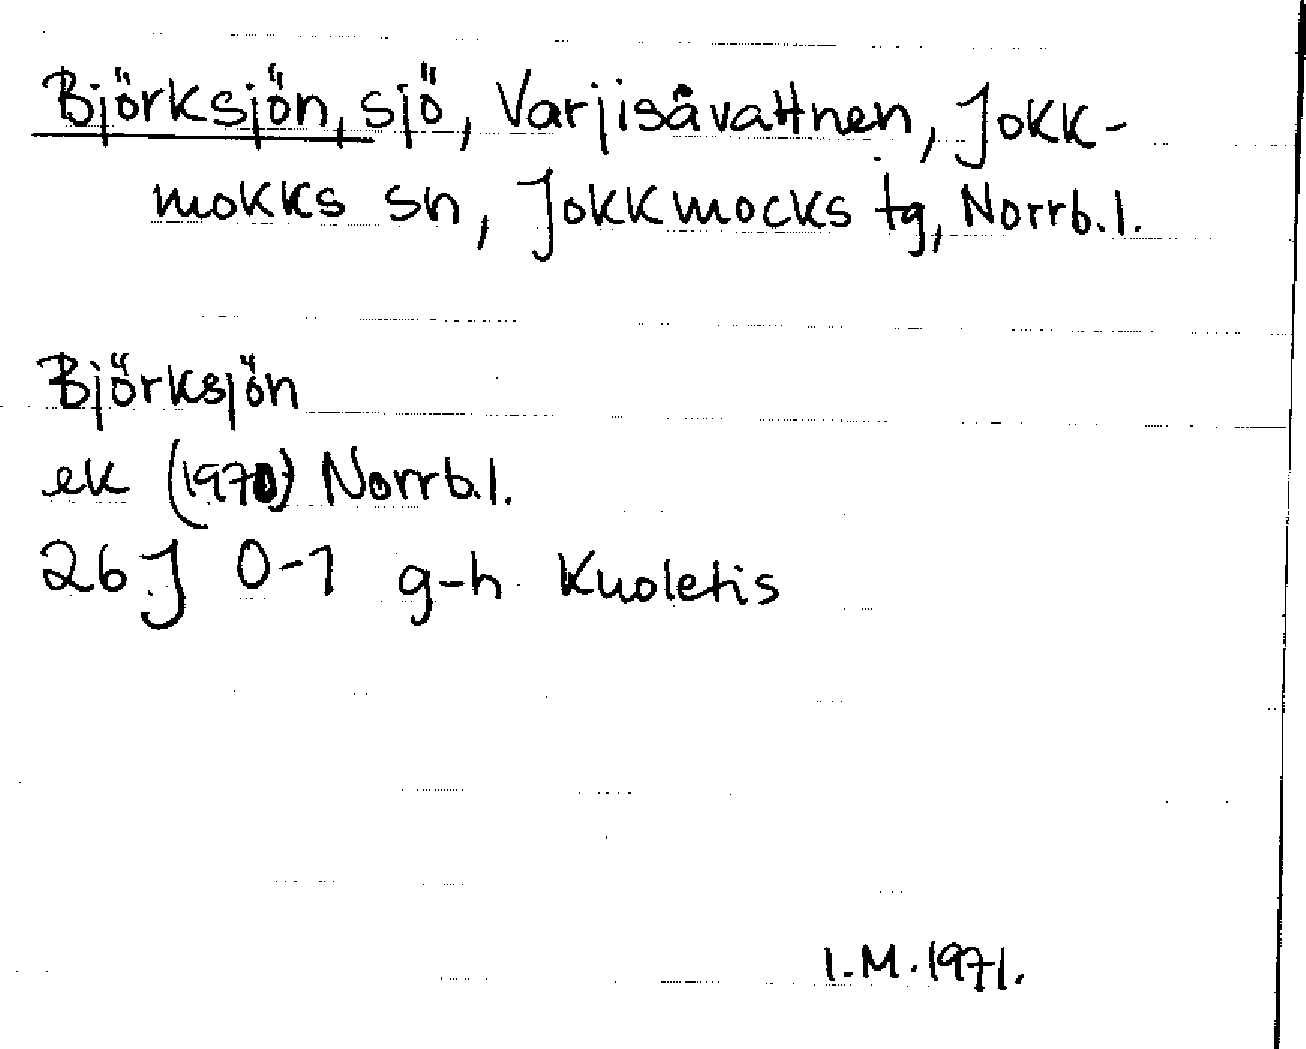 Björksjön, sjö, Varjisåvattnen, Jokk-
mokks sn, Jokkmocks tg, Norrb.l.
Björksjön
ek (1970) Norrb.l.
26J 0-1 g-h Kuoletis
I.M.1971.